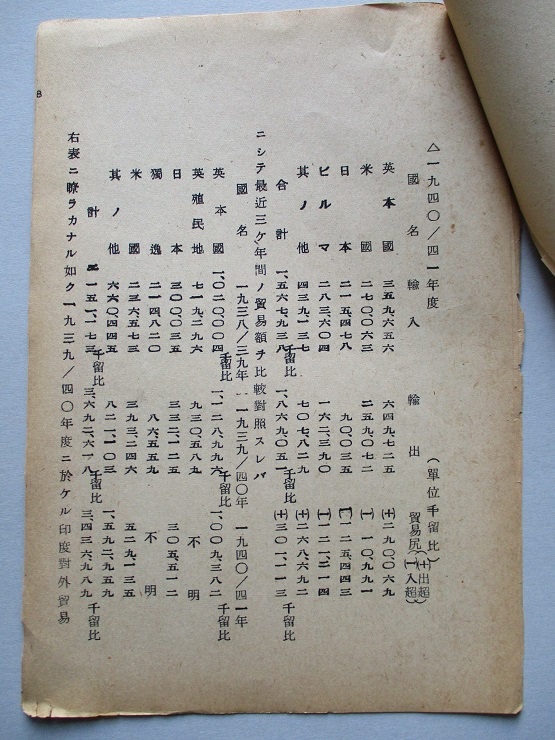 △一九四〇/四一年度 (單位千留比)
國名 輸入 輸出 貿易尻(十出超 一入超)
英本國 三五九、六五六 六四九、七二五 (十)二九〇、〇六九
米國 二七〇、〇六三 二五九、〇七二 (一)一〇、九九一
日本 二一五、四七八 九〇、〇三五 (一)一二五、四四三
ビルマ 二八三、六〇四 一六二、三九〇 (一)一二一、二一四
其ノ他 四三九、一三七 七〇七、八二九 (十)二六八、六九二
合計 一、五六七、九三八千留比 一、八六九、〇五一千留比 (十)三〇一、一一三千留比
ニシテ最近三ケ年間ノ貿易額ヲ比較對照スレバ
國名 一九三八/三九年 一九三九/四〇年 一九四〇/四一年
英本國 一、〇二〇、〇〇四千留比 一、一二八、九九六千留比 一、〇〇九、三八二千留比
英殖民地 七一九、二九六 九三〇、五八九 不明
日本 三〇〇、〇三五 三三二、一二五 三〇五、五一二
獨逸 二一四、八二〇 八六、五五九 不明
米國 二三六、五七三 三九三、二四六 五二九、一三五
其ノ他 六六〇、四四五 八二一、一〇三 一、五九二、九五九
計 三、一五一、一七三千留比 三、六九二、六一八千留比 三、四三六、九八九千留比
右表ニ瞭ラカナル如ク一九三九/四〇年度ニ於ケル印度對外貿易
8